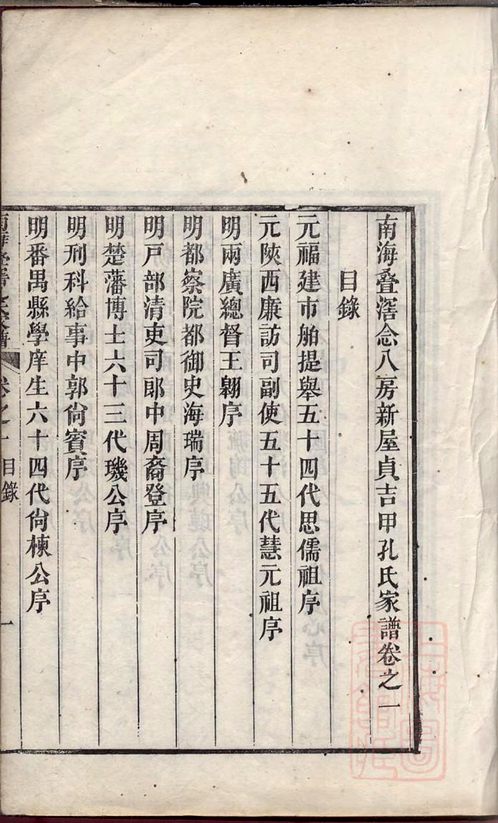 南海疊滘念八房新屋貞吉甲孔氏家譜卷之一
目錄
元福建市舶提舉五十四代思儒祖序
元陝西廉訪司副使五十五代慧元祖序
明兩廣總督王翱序
明都察院都御史海瑞序
明戸部清吏司郎中周裔登序
明楚藩博士六十三代璣公序
明刑科給事中郭尙賓序
明番禺縣學庠生六十四代尙棟公序
卷之一 目錄 一